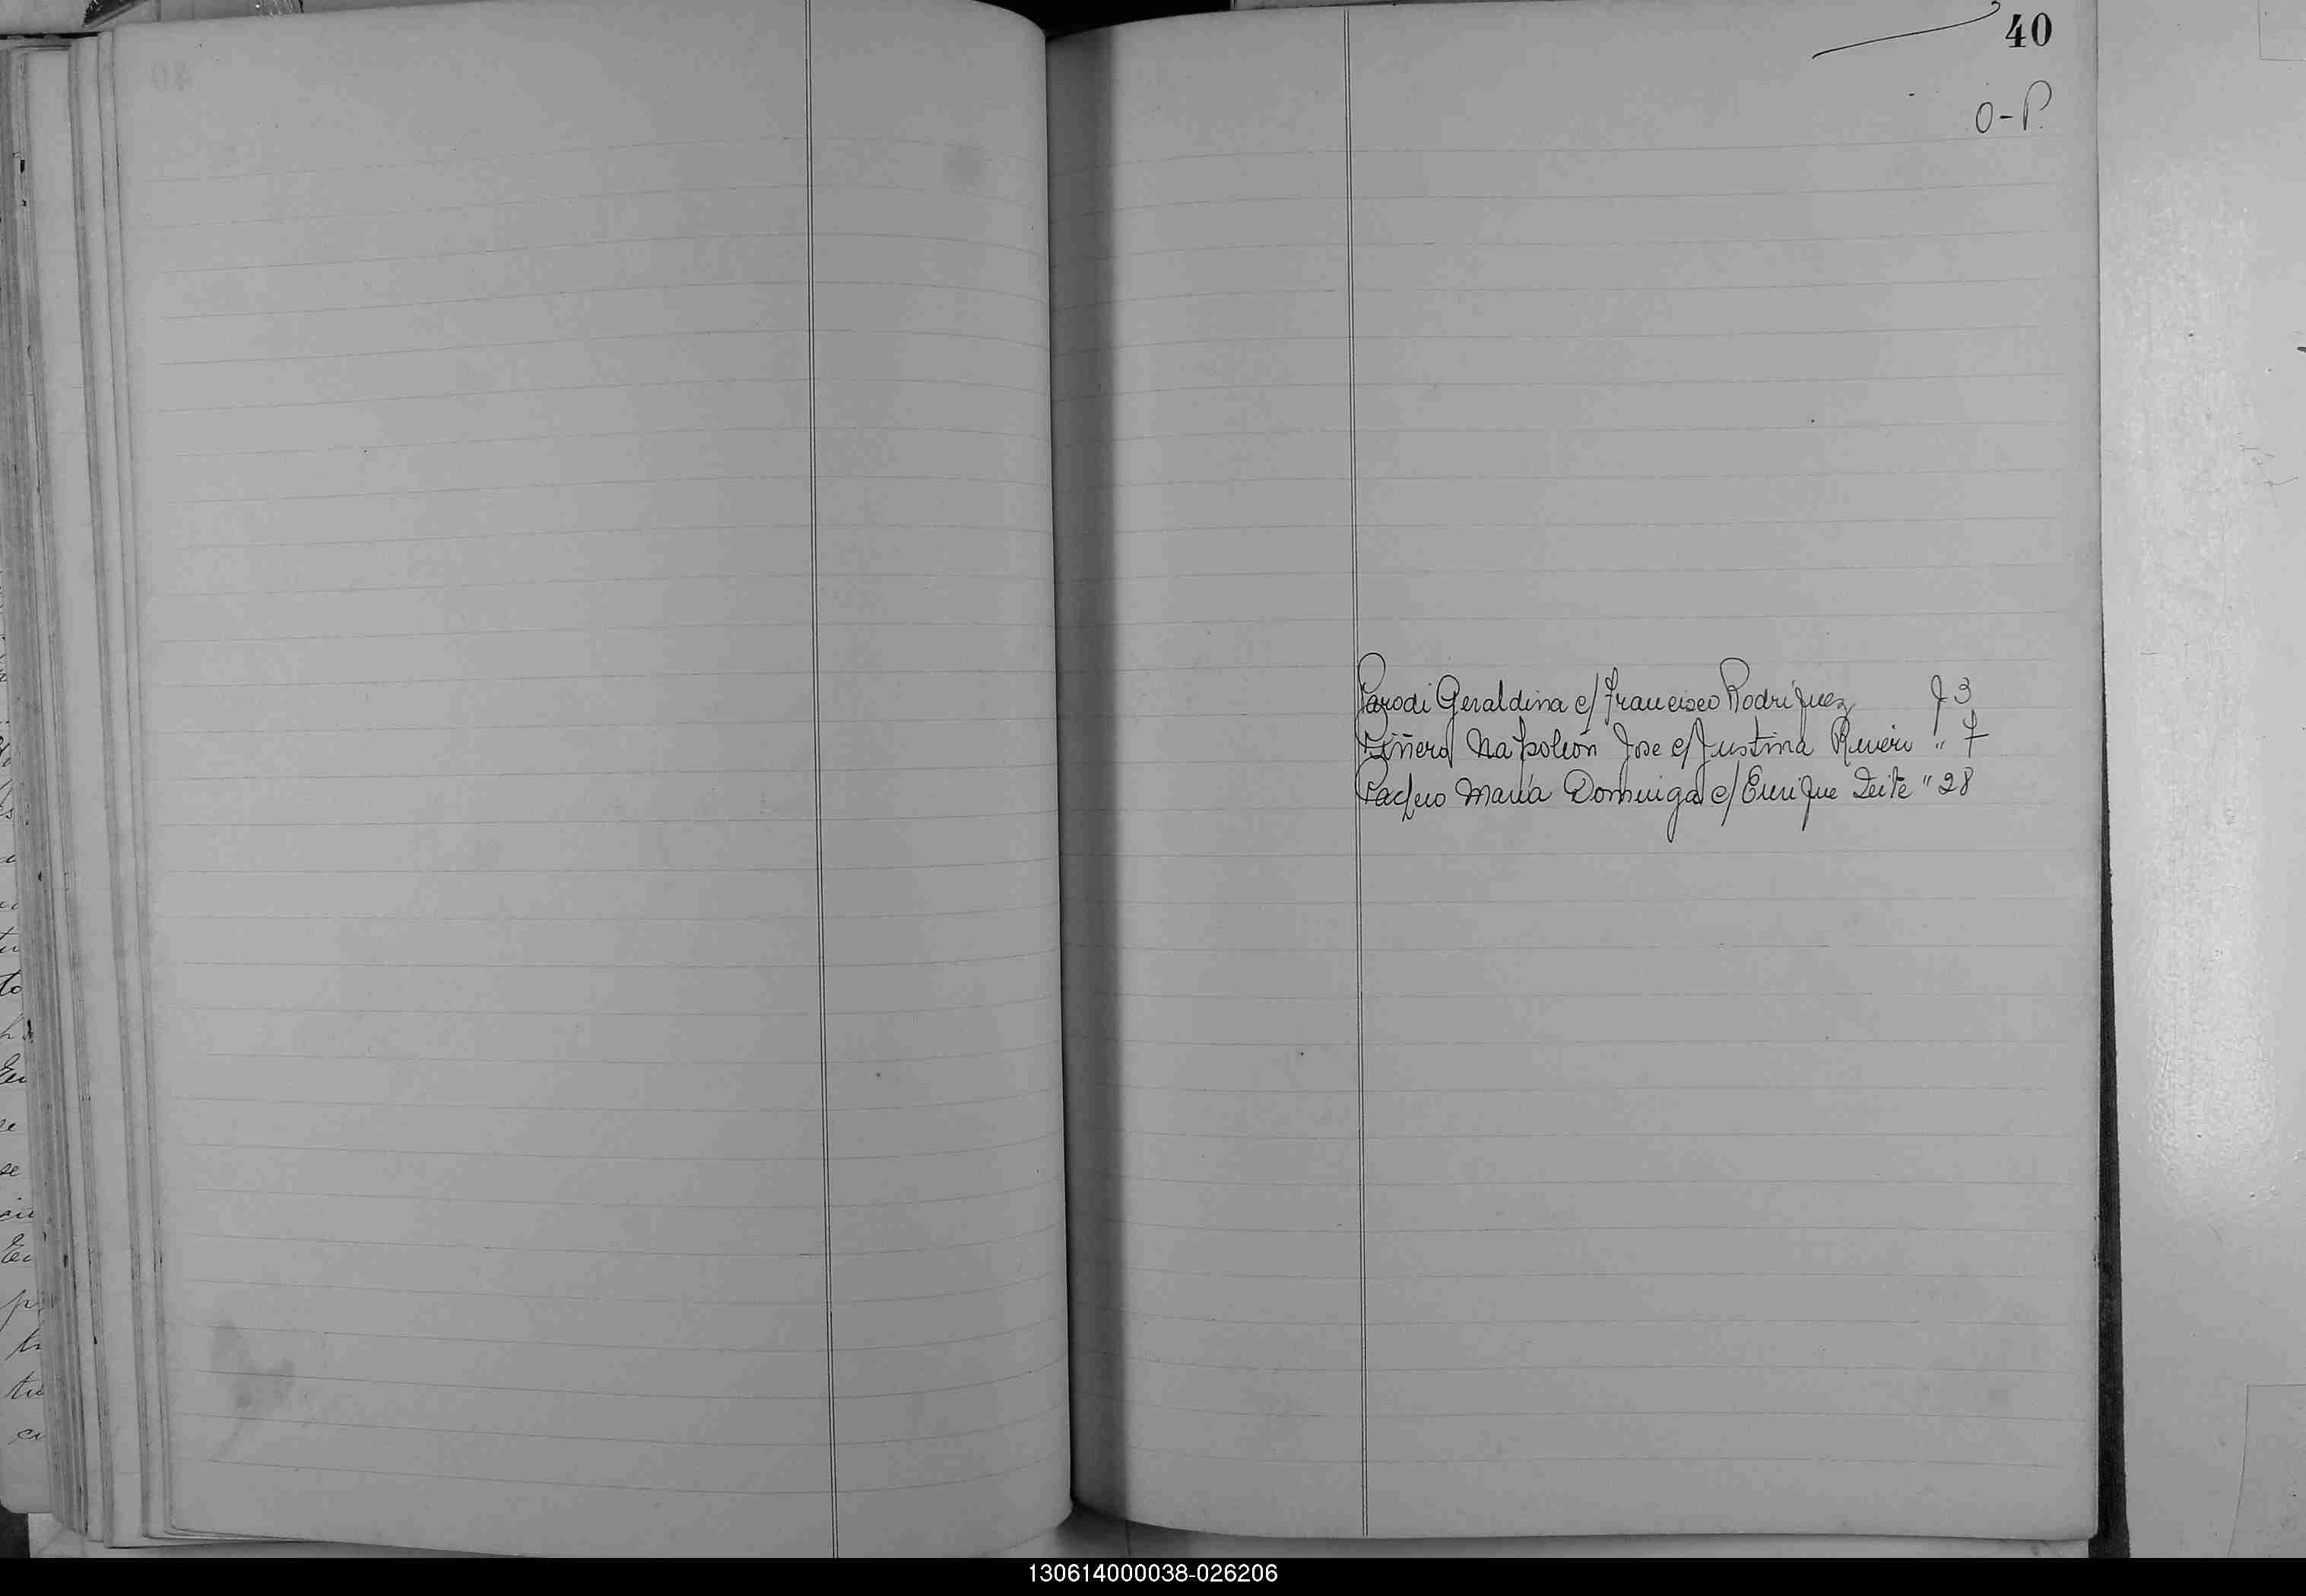 40
O-P.
Parodi Geraldina c/ Francisco Rodriguez f 3
Piñero Napoleón Jose c/ Justina " 7
María Dominga c/ Enrique Leite " 28
130614000038-026206